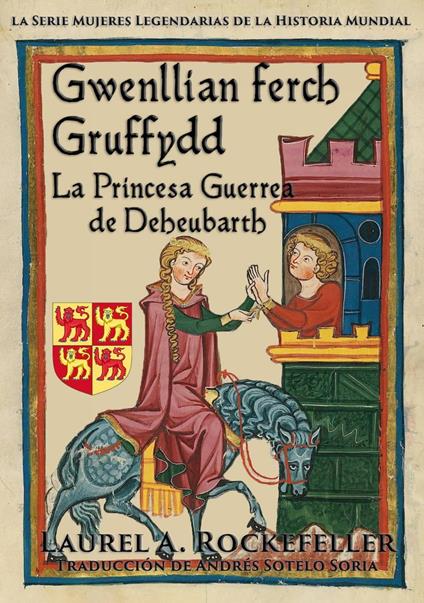 la Serie Mujeres Legendarias de la Historia Mundial
Gwenllian ferch
Gruffydd
La Princesa Guerrea
de Deheubarth
Laurel A. Rockefeller
Traducción de Andrés Sotelo Soria